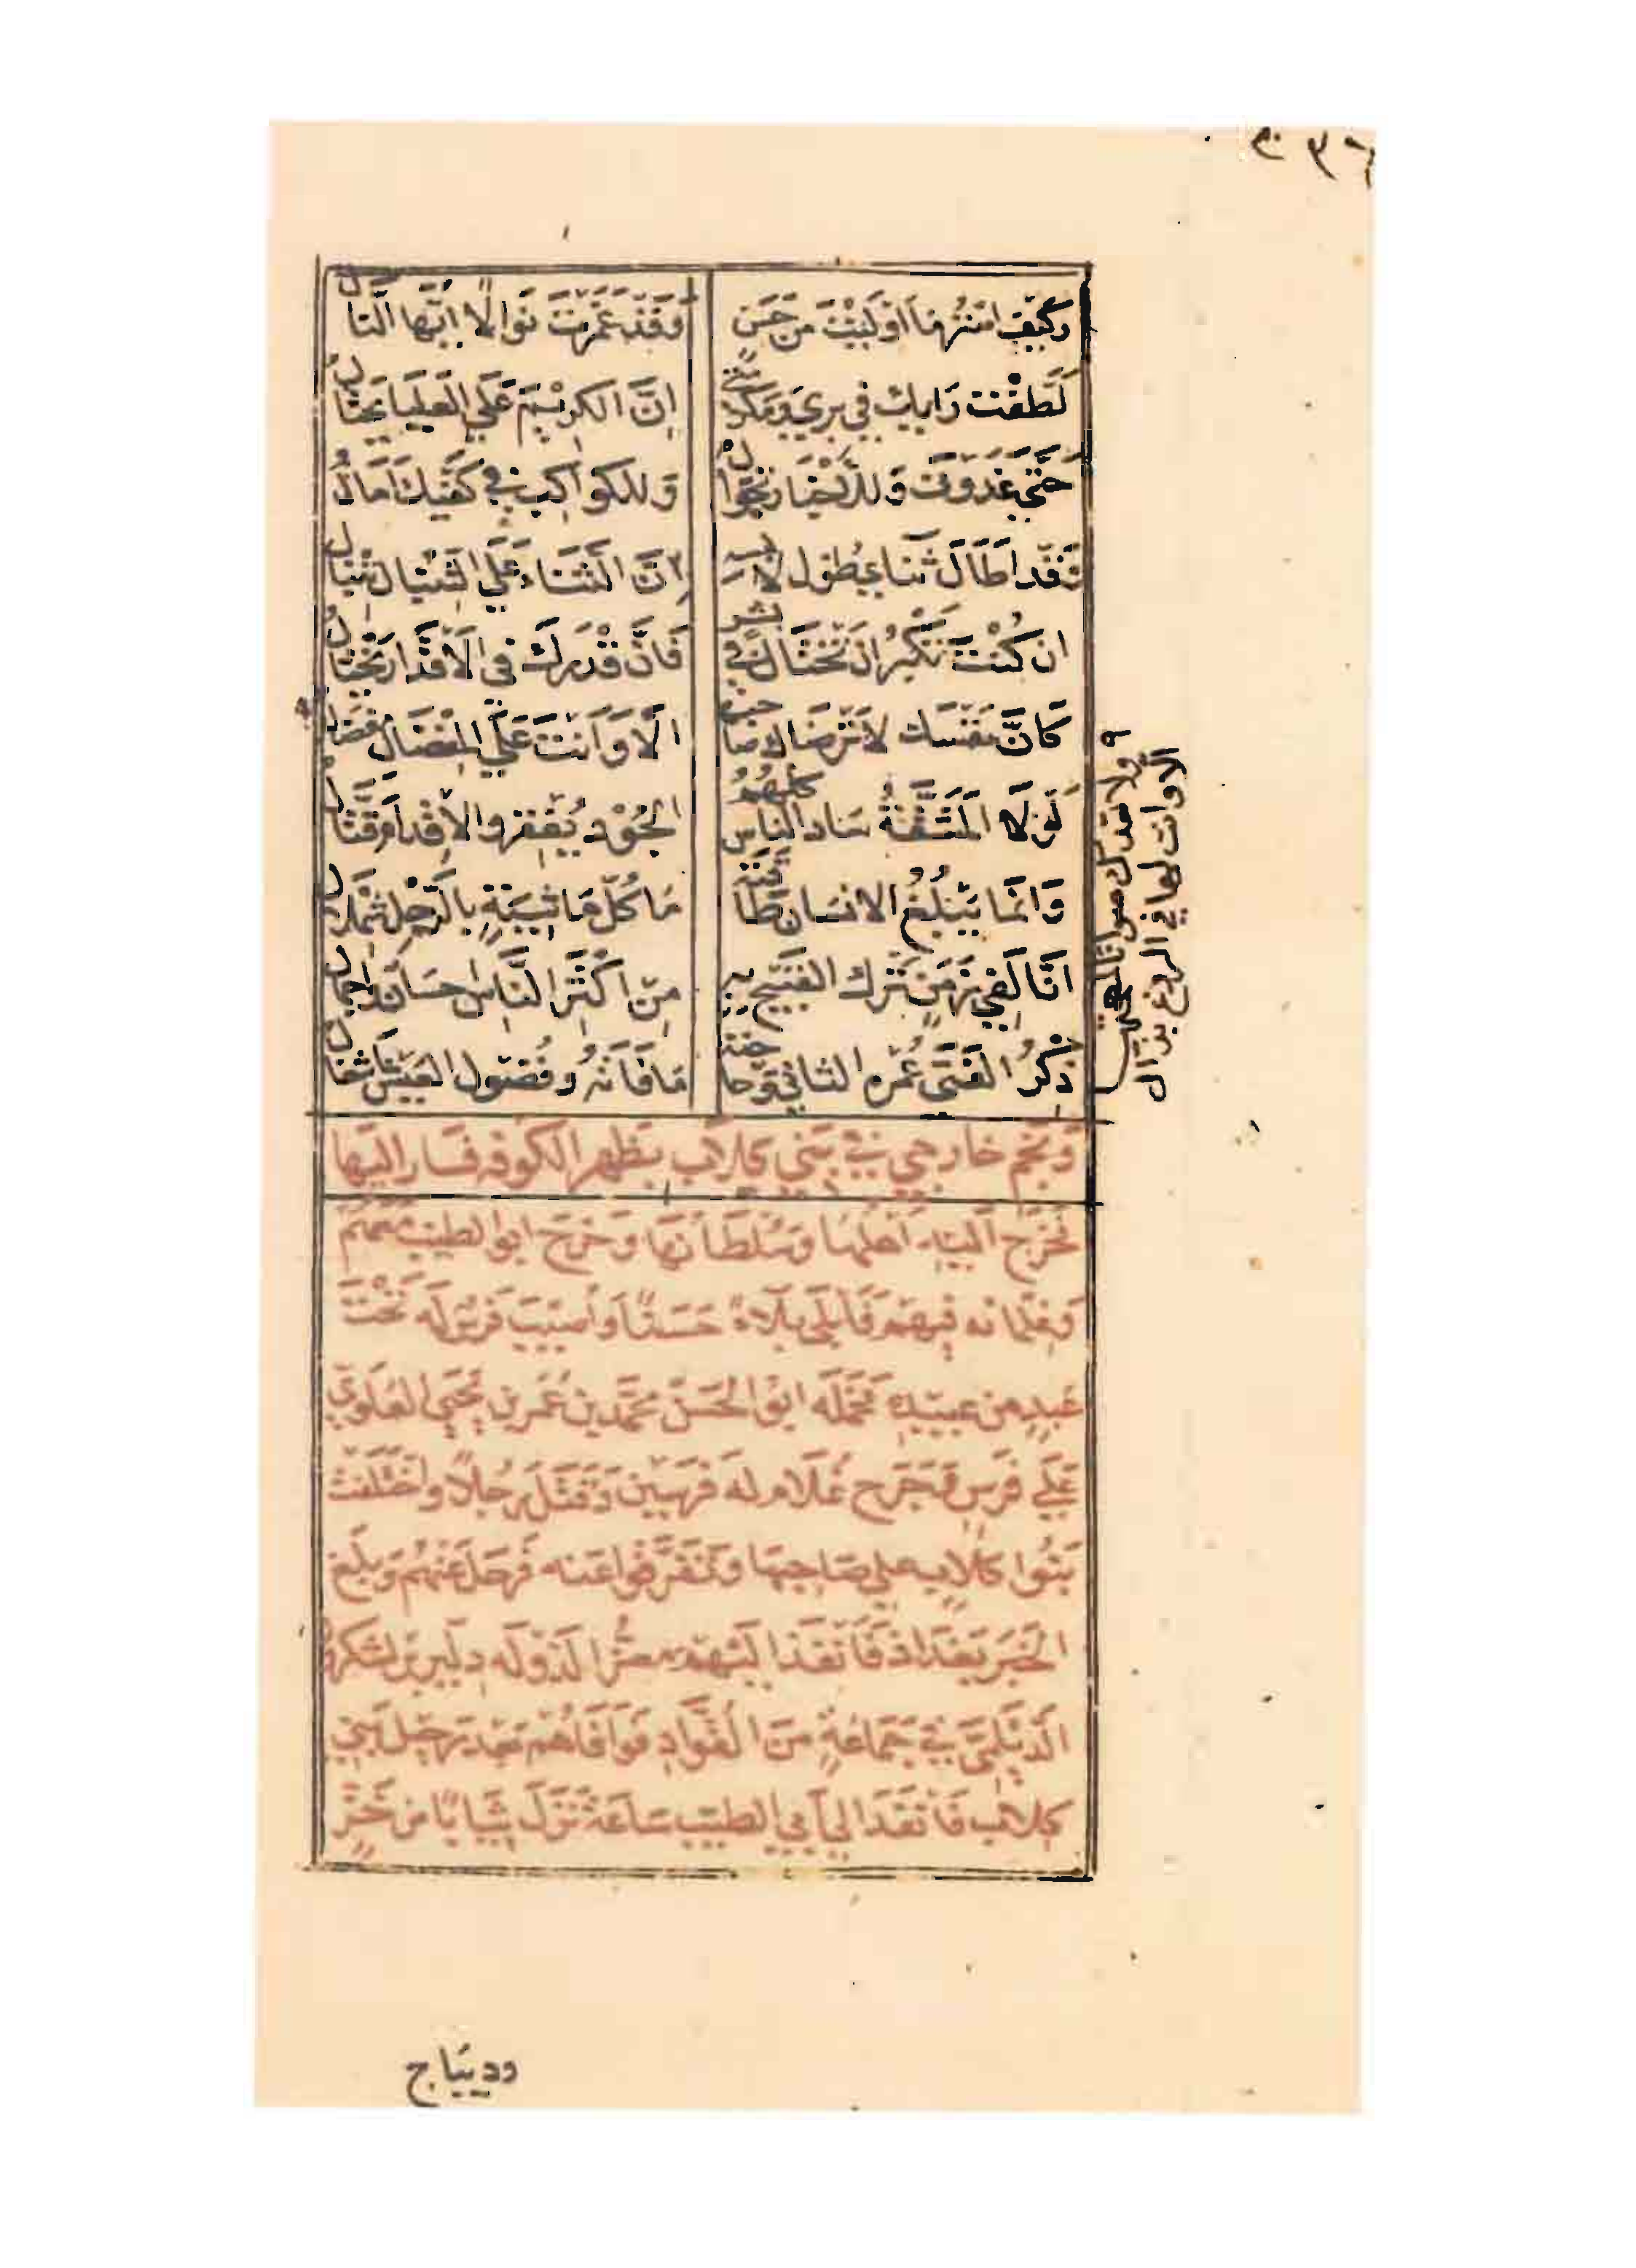 ٣٦
وكيف استرها او ليت من حسن وقد غمرت نوالا ايها النال
لطفت رايك في بري ومكرمتي ان الكريم علي العليا يحتال
حتي غدوت وللاخبار تجوال وللكواكب في كفيك امال
وقد اطال ثناي طول لابسه ان الثناء علي التنبال تنبال
ان كنت تكبر ان تختال في بشر فان قدرك في الاقدار يختال
كان نفسك لا ترضاك صاحبها الا وانت علي المفضال مفضال
ولا تعدك صوانا لمهجتها
الا وانت لها في الروع بذال
لولا المشقة ساد الناس كلهم الجود يفقر والاقدام قتال
وانما يبلغ الانسان طاقته ما كل ماشية بالرحل شملال
انا لفي زمن ترك القبيح به من اكثر الناس احسان واجمال
ذكر الفتي عمره الثاني وحاجته ما فاته وفضول العيش اشغال
ونجم خارجي في بني كلاب بظهر الكوفه فسار اليها
فخرج اليه اهلها وسلطانها وخرج ابو الطيب معهم
وغلمانه فيهم فابلي بلاء حسنا واصيب فرس له تحت
عبد من عبيده فحمله ابو الحسن محمد بن عمر بن يحيي العلوي
علي فرس فجرح غلام له فرسين وقتل رجلا واختلفت
بنوا كلاب علي صاحبها وتفرقوا عنه فرحل عنهم وبلغ
الخبر بغداذ فانفذ اليهم معز الدوله دلير بن لشكروز
الديلمي في جماعة من القواد فوافاهم بعد رحيل بني
كلاب فانفذ الي ابي الطيب ساعة نزل ثيابا من خز
وديباج